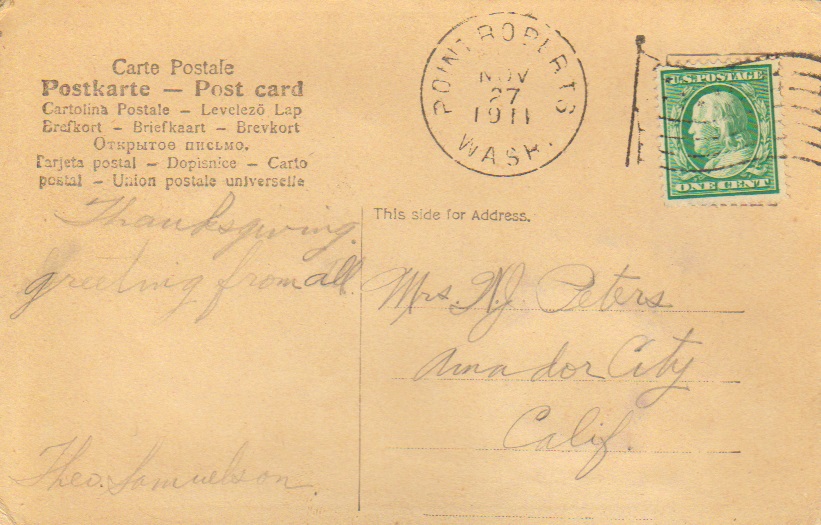 Carte Postale
Postkarte — Post card
Cartolina Postale – Levelező Lap
Brefkort – Briefkaart – Brevkort
Открытое письмо.
Tarjeta postal – Dopisnice – Carto
postal – Union postale universelle
POINT ROBERTS
NOV
27
1911
WASH.
U.S. POSTAGE
ONE CENT
This side for Address.
Thanksgiving
greeting from all.
Theo. Samuelson.
Mrs. N.J. Peters
Amador City
Calif.